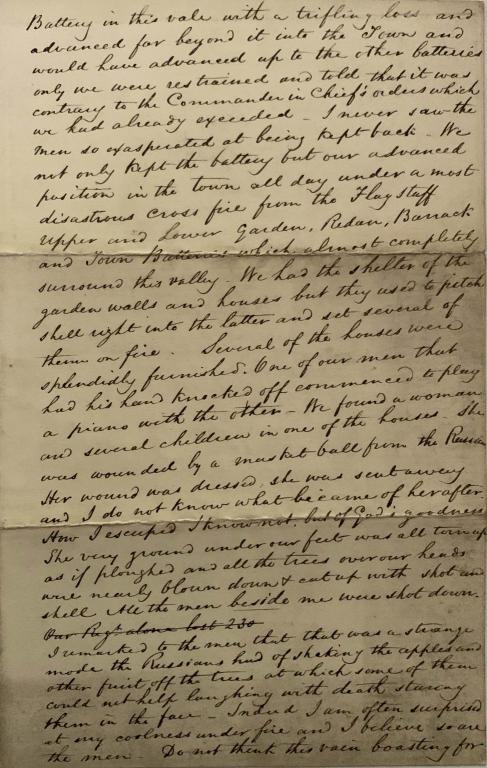 Battery in this vale with a trifling loss and
advanced far beyond it into the Town and
would have advanced up to the other batteries
only we were restrained and told that it was
contrary to the Commander in Chief's orders which
we had already exceeded - I never saw the
men so exasperated at being kept back - We
not only kept the battery but our advanced
position in the town all day under a most
disastrous cross fire from the Flagstaff
Upper and Lower Garden, Redan, Barrack
and Town Batteries which almost completely
surround this valley - We had the shelter of the
garden walls and houses but they used to pitch
shell right into the latter and set several of
them on fire. Several of the houses were
splendidly furnished. One of our men that
had his hand knocked off commenced to play
a piano with the other - We found a woman
and several children in one of the houses. She
was wounded by a musket ball from the Russian
Her wound was dressed, she was sent away
and I do not know what became of her after
How I escaped I know not, but of God's goodness
The very ground under our feet was all torn up
as if ploughed and all the trees over our heads
were nearly blown down & cut up with shot and
shell All the men beside me were shot down.
Our Regt alone lost 230
I remarked to the men that that was a strange
mode the Russians had of shaking the apples and
other fruit off the trees at which some of them
could not help laughing with death staring
them in the face - Indeed I am often surprised
at my coolness under fire and I believe so are
the men - Do not think this vain boasting for